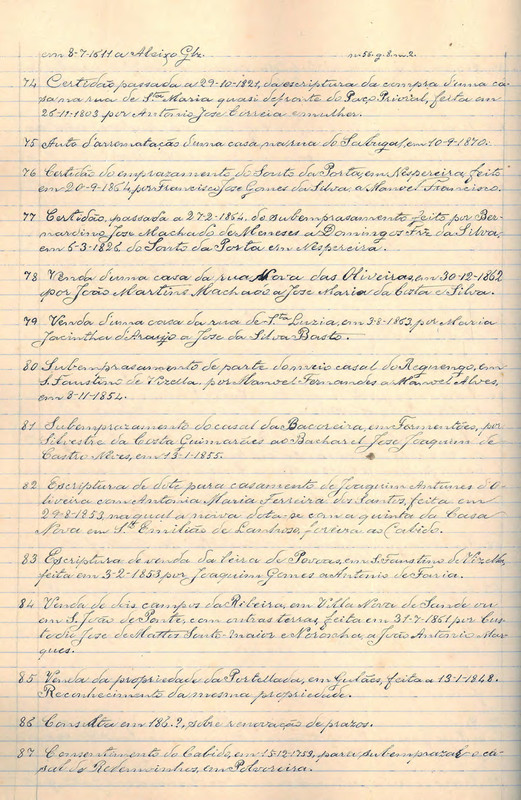 em 8-7-1611 a Aleixo Glz.
74 Certidão passada a 29-10-1821, da escriptura da compra d'uma ca-
sa na rua de S.ta Maria quasi defronte do Paço Privoral, feita em
26-11-1803 por Antonio Jose Correia e mulher.
75 Auto d'arrematação d'uma casa na rua do Sabugal, em 10-9-1870.
76 Certidão do emprazamento do Souto da Porta, em Nespereira, feito
em 20-9-1864, por Francisco Jose Gomes da Silva, a Manoel Francisco.
77 Certidão, passada a 27-2-1864, do subemprasamento feito por Ber-
nardino Jose Machado de Meneses a Domingos Frz da Silva,
em 6-3-1826 do Souto da Porta em Nespereira.
78 Venda d'uma casa da rua Nova das Oliveiras, em 30-12-1862
por João Martins Machado a Jose Maria da Costa e Silva.
79 Venda d'uma casa da rua de S.ta Luzia, em 3-8-1863, por Maria
Jacintha d'Araujo a Jose da Silva Basto.
80 Subemprasamento de parte do meio casal do Reguengo, em
S. Faustino de Vizella por Manoel Fernandes a Manoel Alves,
em 8-11-1854.
81 Subemprazamento do casal da Bacoreira, em Fermentões, por
Silvestre da Costa Guimarães ao Bacharel Jose Joaquim de
Castro Neves, em 13-1-1855.
82 Escriptura de dote para casamento de Joaquim Antunes d'O-
liveira com Antonia Maria Ferreira dos Santos, feita em
29-8-1853, na qual a noiva dota-se com a quinta da Casa
Nova em S.to Emilião de foreira ao Cabido.
83 Escriptura de venda da leira de Povoas, em S. Faustino de Vizella,
feita em 3-2-1853 por Joaquim Gomes a Antonio de Faria.
84 Venda de dois campos da Ribeira, em Villa Nova de Sande ou
em S. João de Ponte, com outras terras, feita em 31-7-1861 por Cus-
todio Jose de Mattos Souto-maior e Noronha, a João Antonio Mar-
ques.
85 Venda da propriedade da Portellada, em Gulães, feita a 13-1-1848.
Reconhecimento da mesma propriedade.
86 Consulta em 186.?, sobre renovação de prazos.
87 Consentimento do Cabido, em 15-12-1753, para subemprazar o ca-
sal de em Polvoreira.